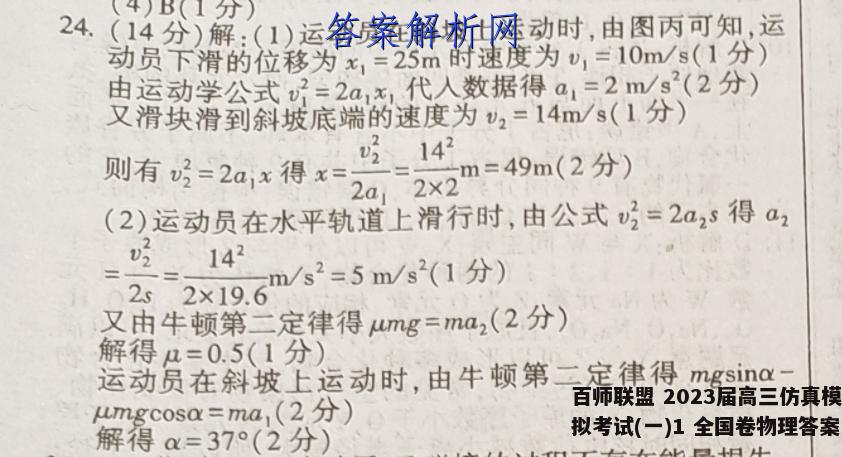 (4)B(1分)
24. (14分)解:(1)运动时,由图丙可知,运
答案解析网
动员下滑的位移为 x₁=25m 时速度为 v₁=10m/s(1分)
由运动学公式 v₁²=2a₁x₁ 代人数据得 a₁=2 m/s²(2分)
又滑块滑到斜坡底端的速度为 v₂=14m/s(1分)
则有 v₂²=2a₁x 得 x=v₂²/2a₁=14²/2×2 m=49m(2分)
(2)运动员在水平轨道上滑行时,由公式 v₂²=2a₂s 得 a₂
=v₂²/2s=14²/2×19.6 m/s²=5 m/s²(1分)
又由牛顿第二定律得 μmg=ma₂(2分)
解得 μ=0.5(1分)
运动员在斜坡上运动时,由牛顿第二定律得 mgsinα-
μmgcosα=ma₁(2分)
解得 α=37°(2分)
百师联盟 2023届高三仿真模
拟考试(一)1 全国卷物理答案